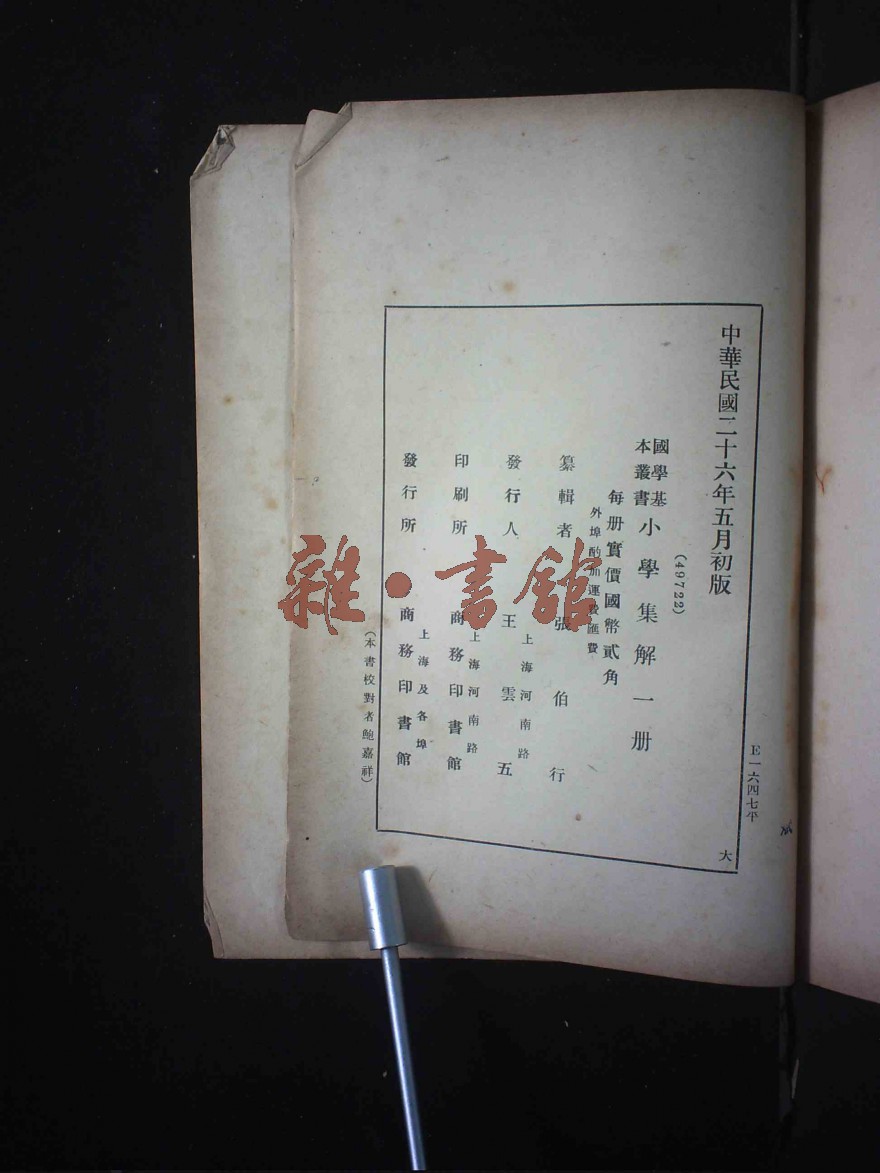 中華民國二十六年五月初版
(49722)
國學基本叢書
小學集解一册
每册實價國幣貳角
外埠酌加運費匯費
纂輯者 張伯行
發行人 王雲五
上海河南路
印刷所 商務印書館
上海河南路
發行所 商務印書館
上海及各埠
(本書校對者鮑嘉祥)
E一六四七平
大
雜·書館